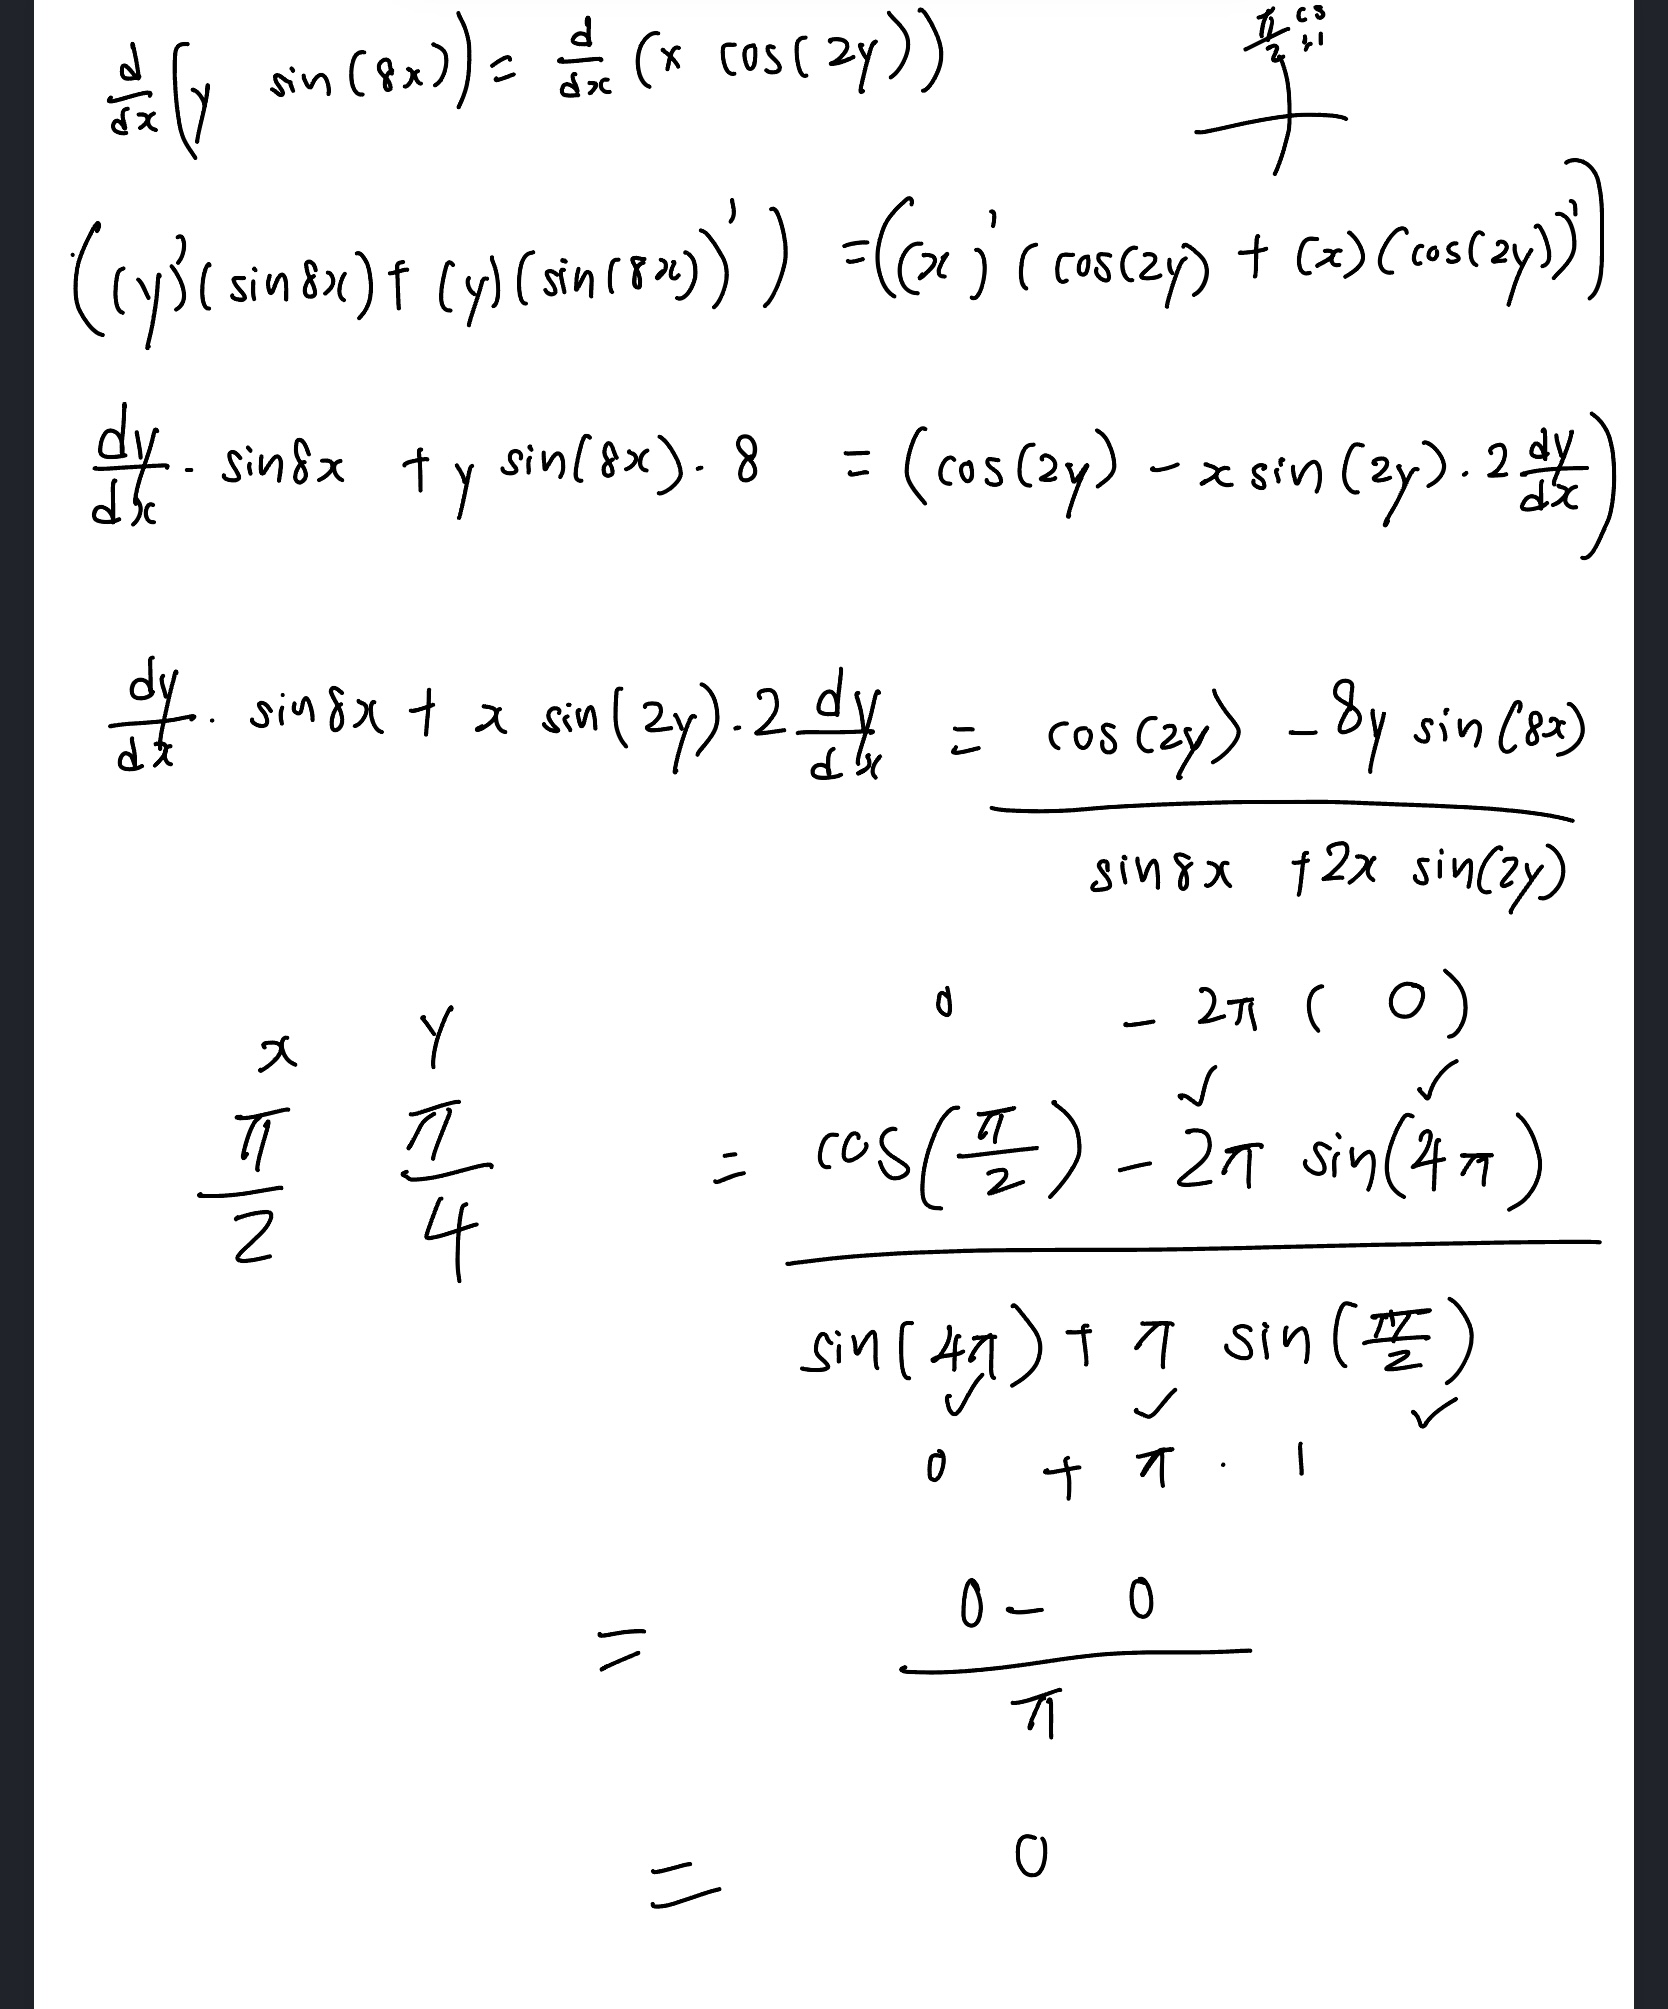 d/dx (y sin(8x)) = d/dx (x cos(2y))
π/2
((y)'(sin8x) + (y)(sin(8x))') = ((x)'(cos(2y) + (x)(cos(2y))')
dy/dx · sin8x + y sin(8x) · 8 = (cos(2y) - x sin(2y) · 2 dy/dx)
dy/dx · sin8x + x sin(2y) · 2 dy/dx = cos(2y) - 8y sin(8x)
sin8x + 2x sin(2y)
0 - 2π ( 0 )
x y
π/2 π/4
= cos(π/2) - 2π sin(4π)
✓ ✓
sin(4π) + π sin(π/2)
✓ ✓ ✓
0 + π · 1
= 0 - 0
π
= 0